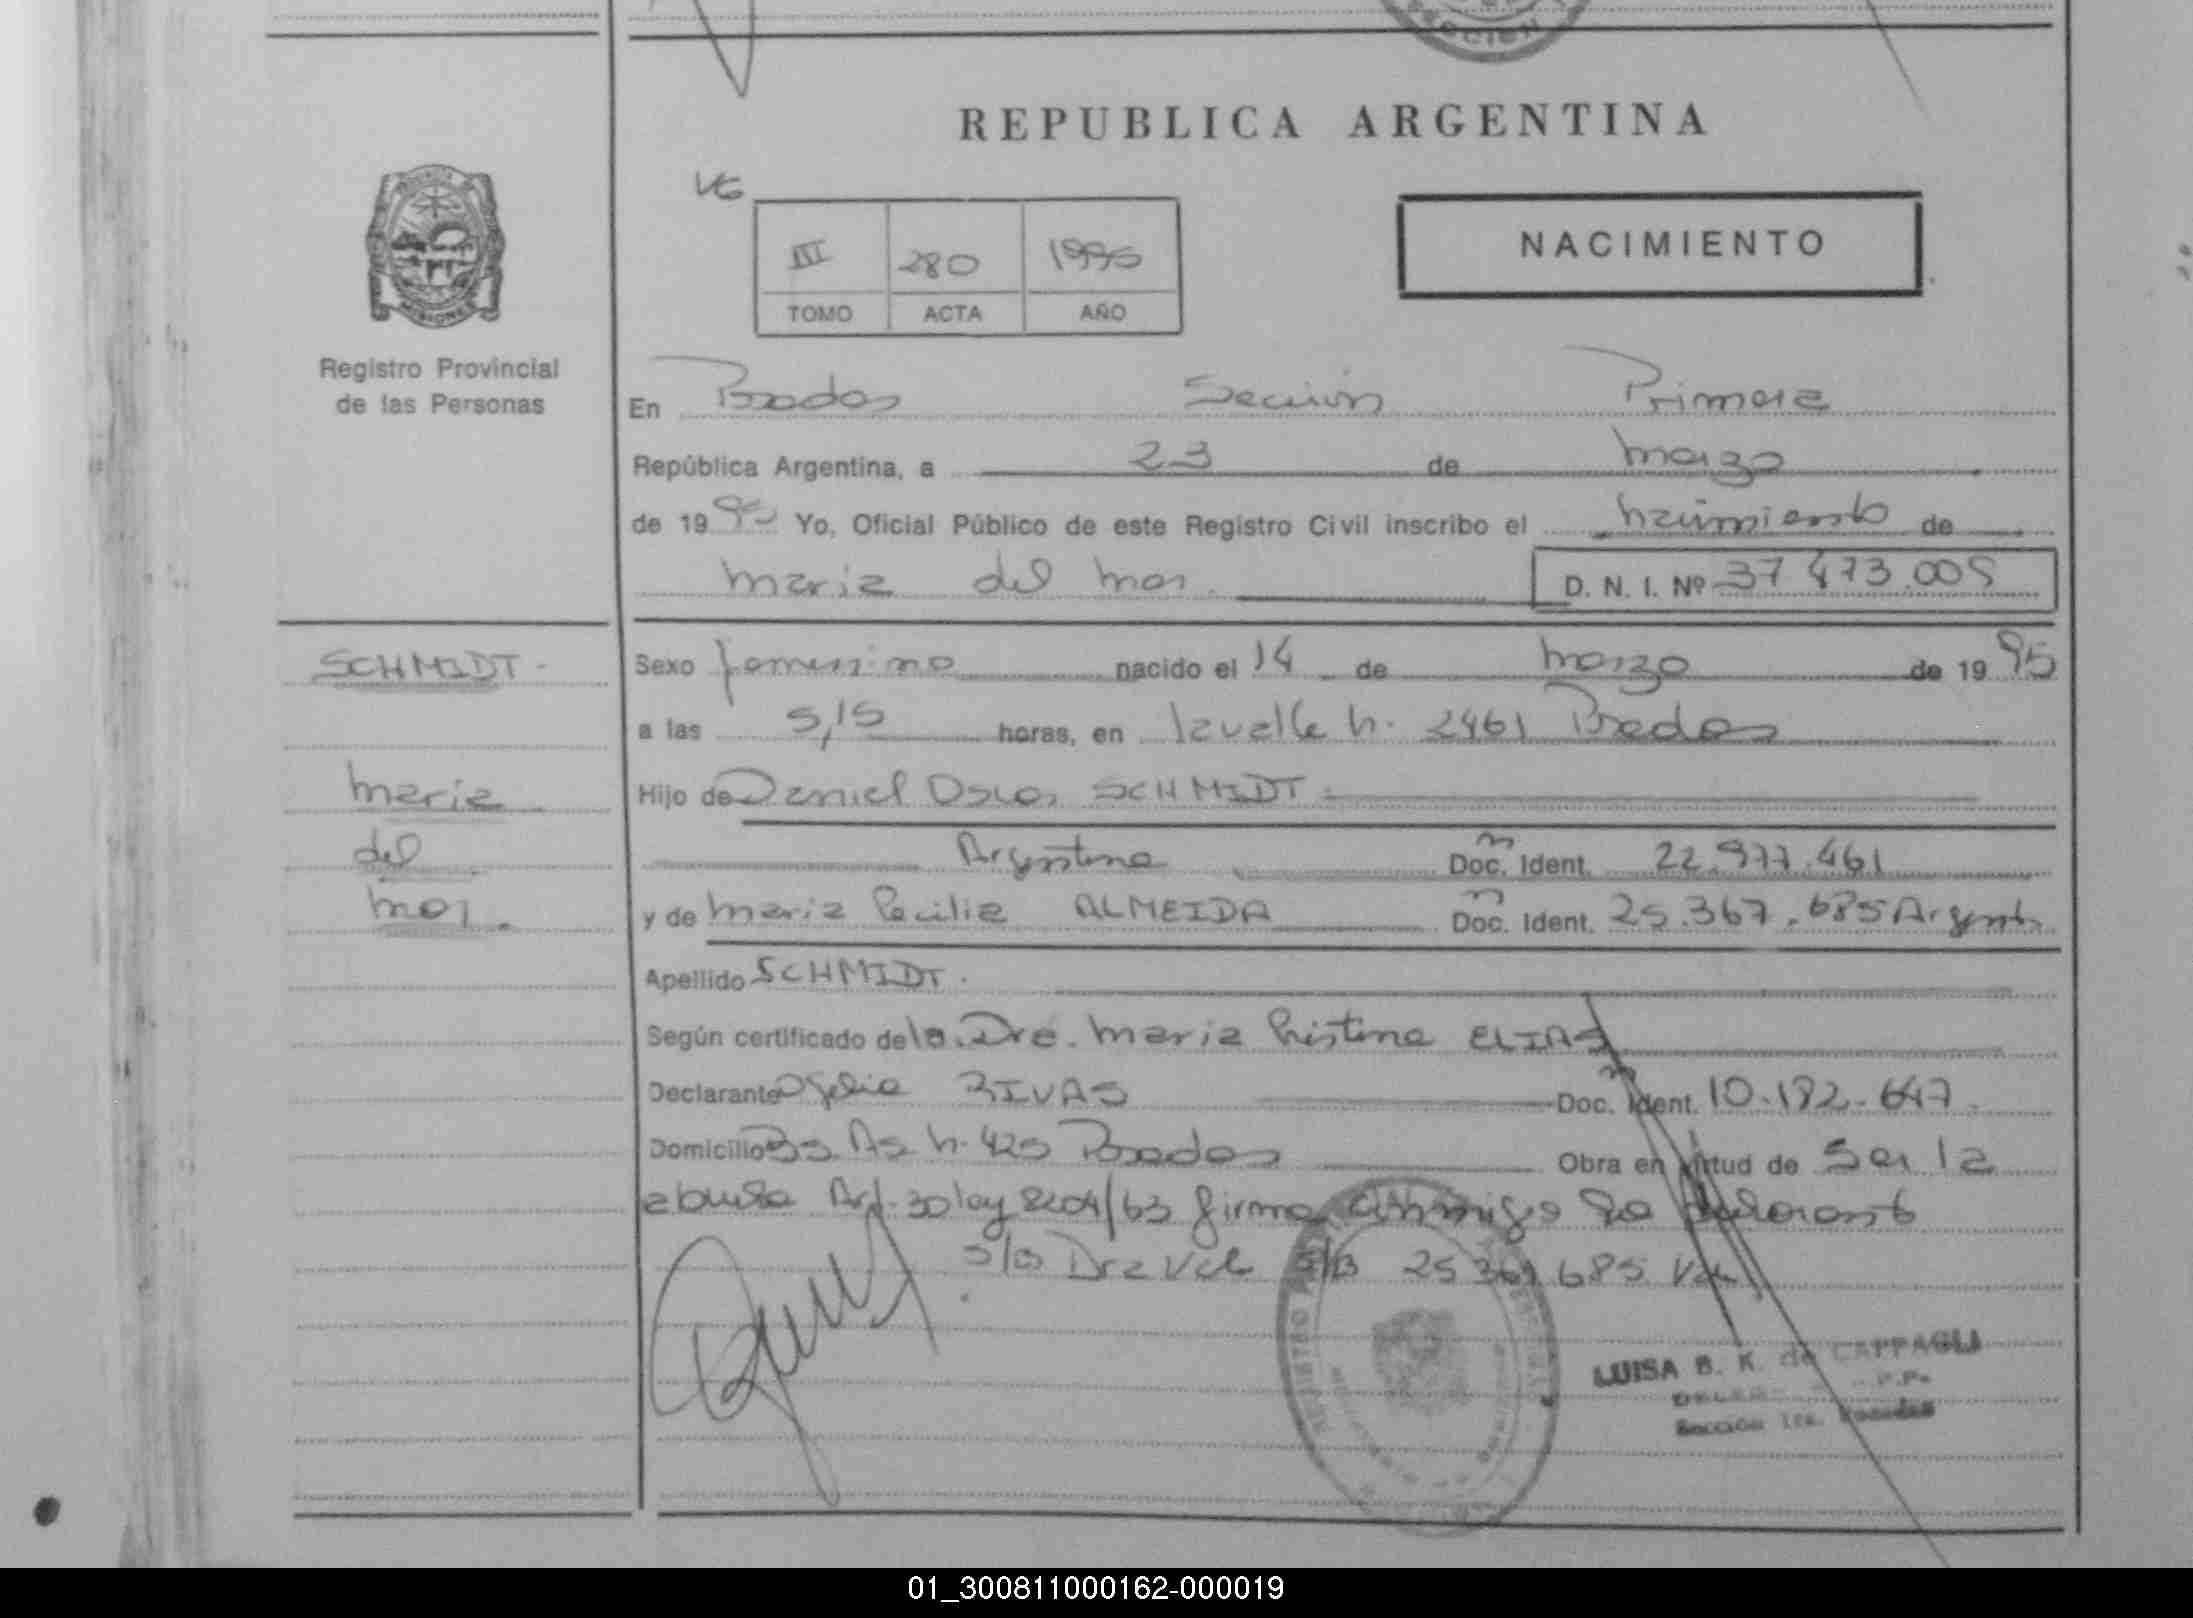 REPUBLICA ARGENTINA
NACIMIENTO
III 280 1995
TOMO ACTA AÑO
MISIONES
Registro Provincial
de las Personas
En Posadas Sección Primera
República Argentina, a 23 de marzo
de 1995 Yo, Oficial Público de este Registro Civil inscribo el nacimiento de
Maria del Mar. D. N. I. Nº 37.473.005
SCHMIDT.
Maria
del
Mar.
Sexo femenino nacido el 14 de marzo de 1995
a las 5,15 horas, en Lavalle N. 2461 Posadas
Hijo de Daniel Oscar SCHMIDT.
Argentino Doc. Ident. 22.977.461
y de Maria Cecilia ALMEIDA Doc. Ident. 25.367.685 Argent.
Apellido SCHMIDT.
Según certificado de la. Dra. Maria Cristina ELIAS
Declarante Ofelia RIVAS Doc. Ident. 10.182.647.
Domicilio Bs. As N. 425 Posadas Obra en virtud de Ser la
abuela Art. 30 ley 8204/63 firma conmigo la declarante
S/B Dra Vale S/B 25 367.685 Vale
LUISA B. K. de CAPPAGLI
Sección 1ra. Posadas
01_300811000162-000019